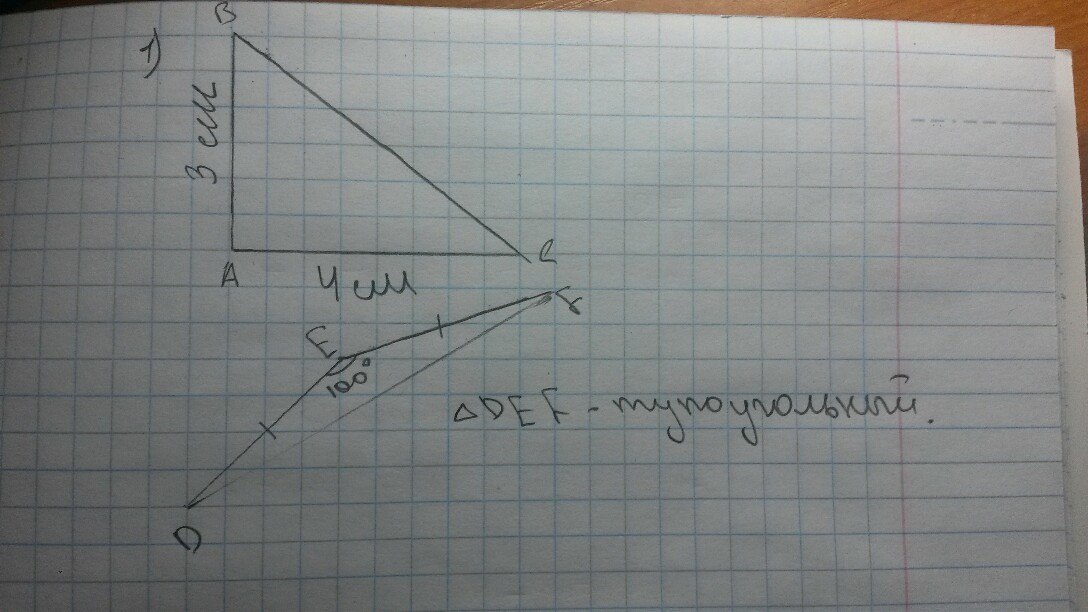 1)
B
3 см
A
C
4 см
E
F
100°
D
△DEF - тупоугольный.